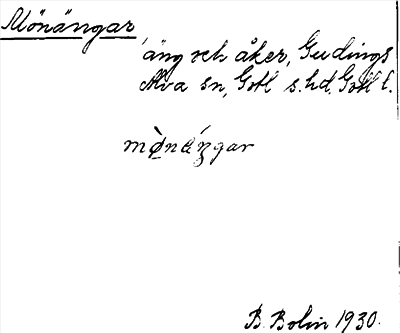 Mönängar
äng och åker, Gudings
Alva sn, Gotl s. hd, Gotl l.
mö̀nä́ŋgar
B. Bolin 1930.